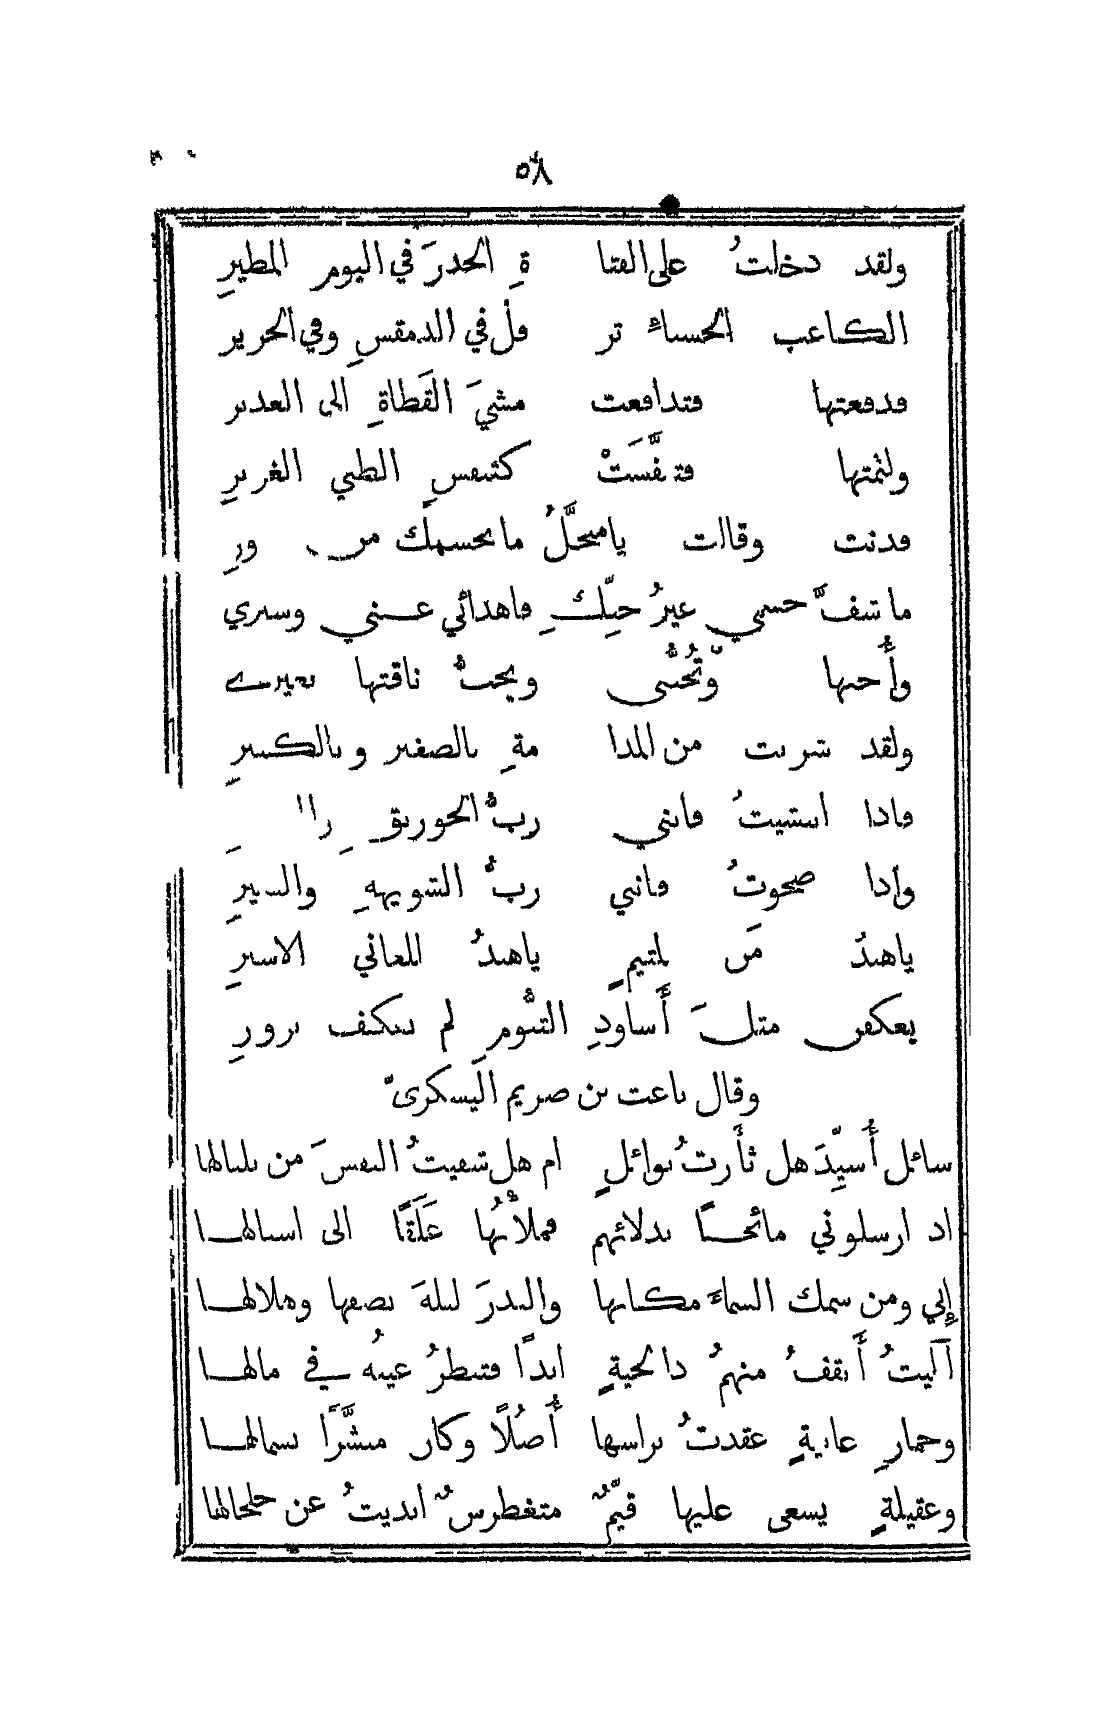 ٥٨
ولقد دخلتُ على الفتا ةِ الخدرَ في اليوم المطيرِ
الكاعب الحسناءَ تر فل في الدمقسِ وفي الحرير
فدفعتها فتدافعت مشيَ القَطاةِ الى الغدير
ولثمتها فتنفَّسَتْ كتنفسِ الظبي الغريرِ
فدنت وقالت يا منخَّلُ ما بجسمك من
ما شفَّ جسمي غيرُ حبِّكِ فاهدائي عني وسيري
وأُحبها وتُحبُّني ويحبُّ ناقتها بعيري
ولقد شربت من المدا مةِ بالصغير وبالكبيرِ
فاذا انتشيتُ فانني ربُّ الخورنق
واذا صحوتُ فانني ربُّ الشويهةِ والبعيرِ
يا هندُ مَن لمتيمٍ يا هندُ للعاني الاسيرِ
يعكفن مثلَ أَساودِ التنُّومِ لم تعكف بزورِ
وقال باعث بن صريم اليشكريّ
سائل أُسيِّدَ هل ثأَرتُ بوائلٍ ام هل شفيتُ النفسَ من بلبالها
اذ ارسلوني مائحًا بدلائهم فملأْتُها عَلَقًا الى اسبالها
إِني ومن سمك السماءَ مكانها والبدرَ ليلةَ نصفها وهلالها
آليتُ أَثقفُ منهمُ ذا لحيةٍ ابدًا فتنظرُ عينُه في مالها
وخمارِ غانيةٍ عقدتُ براسها أُصُلًا وكان منشَّرًا بشمالها
وعقيلةٍ يسعى عليها قيّمٌ متغطرسٌ ابديتُ عن خلخالها